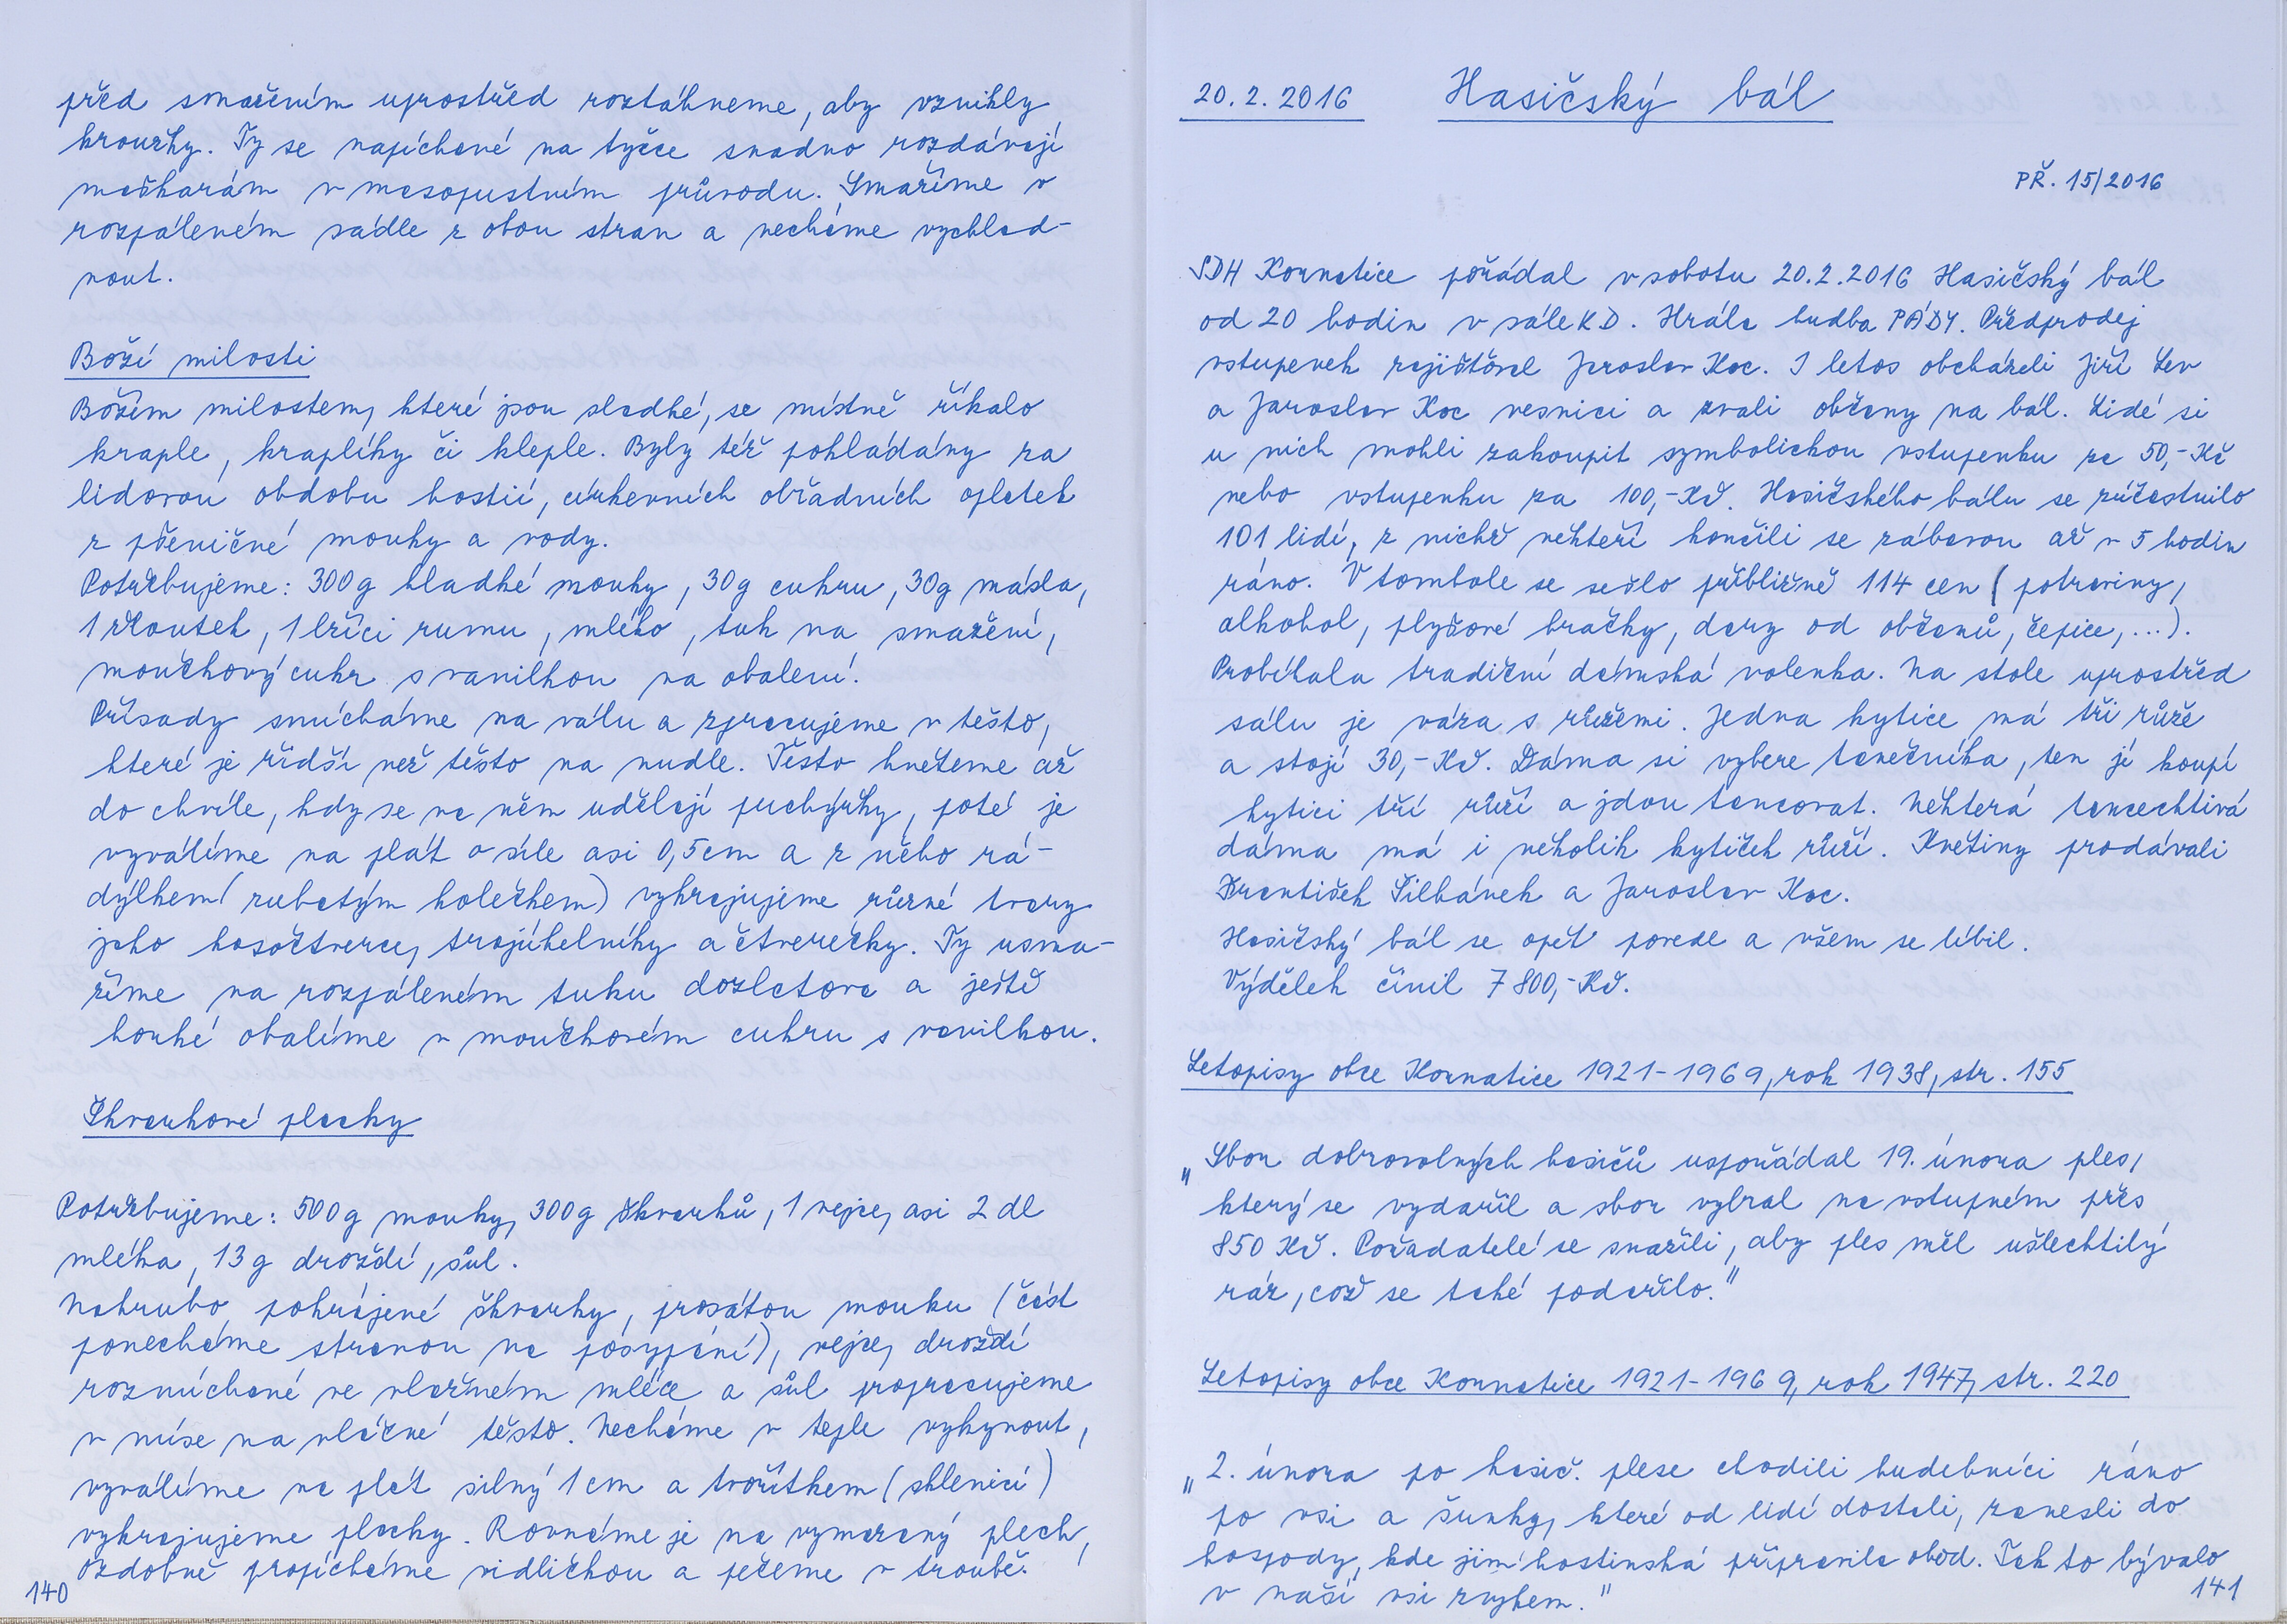 před smažením uprostřed roztáhneme, aby vznikly
kroužky. Ty se napíchané na tyčce snadno rozdávají
maškarám v masopustním průvodu. Smažíme v
rozpáleném sádle z obou stran a necháme vychlad-
nout.
Boží milosti
Božím milostem, které jsou sladké, se místně říkalo
kraple, kraplíky či kleple. Byly též pokládány za
lidovou obdobu hostií, církevních obřadních oplatek
z pšeničné mouky a vody.
Potřebujeme: 300g hladké mouky, 30g cukru, 30g másla,
1 žloutek, 1 lžíci rumu, mléko, tuk na smažení,
moučkový cukr s vanilkou na obalení.
Přísady smícháme na válu a zpracujeme v těsto,
které je řidší než těsto na nudle. Těsto hněteme až
do chvíle, kdy se na něm udělají puchýřky, poté je
vyválíme na plát o síle asi 0,5cm a z něho rá-
dýlkem (zubatým kolečkem) vykrajujeme různé tvary
jako kosočtverce, trojúhelníky a čtverečky. Ty usma-
žíme na rozpáleném tuku dozlatova a ještě
horké obalíme v moučkovém cukru s vanilkou.
Škvarkové placky
Potřebujeme: 500g mouky, 300g škvarků, 1 vejce, asi 2 dl
mléka, 13g droždí, sůl.
Nahrubo pokrájené škvarky, prosátou mouku (část
ponecháme stranou na posypání), vejce, droždí
rozmíchané ve vlažném mléce a sůl propracujeme
v míse na vláčné těsto. Necháme v teple vykynout,
vyválíme na plát silný 1 cm a tvořítkem (sklenicí)
vykrajujeme placky. Rovnáme je na vymazaný plech,
ozdobně propícháme vidličkou a pečeme v troubě.
140
20. 2. 2016 Hasičský bál
PŘ. 15/2016
SDH Kornatice pořádal v sobotu 20.2.2016 Hasičský bál
od 20 hodin v sále KD. Hrála hudba PÁDY. Předprodej
vstupenek zajišťoval Jaroslav Koc. I letos obcházeli Jiří Lev
a Jaroslav Koc vesnici a zvali občany na bál. Lidé si
u nich mohli zakoupit symbolickou vstupenku za 50,- Kč
nebo vstupenku za 100,- Kč. Hasičského bálu se zúčastnilo
101 lidí, z nichž někteří končili se zábavou až v 5 hodin
ráno. V tombole se sešlo přibližně 114 cen (potraviny,
alkohol, plyšové hračky, dary od občanů, čepice,...).
Probíhala tradiční dámská volenka. Na stole uprostřed
sálu je váza s růžemi. Jedna kytice má tři růže
a stojí 30,- Kč. Dáma si vybere tanečníka, ten jí koupí
kytici tří růží a jdou tancovat. Některá tancechtivá
dáma má i několik kytiček růží. Květiny prodávali
František Šilhánek a Jaroslav Koc.
Hasičský bál se opět povedl a všem se líbil.
Výdělek činil 7 800,- Kč.
Letopisy obce Kornatice 1921-1969, rok 1938, str. 155
„Sbor dobrovolných hasičů uspořádal 19. února ples,
který se vydařil a sbor vybral na vstupném přes
850 Kč. Pořadatelé se snažili, aby ples měl ušlechtilý
ráz, což se také podařilo."
Letopisy obce Kornatice 1921-1969, rok 1947, str. 220
„2. února po hasič. plese chodili hudebníci ráno
po vsi a šunky, které od lidí dostali, zanesli do
hospody, kde jim hostinská připravila oběd. Tak to bývalo
v naší vsi zvykem."
141